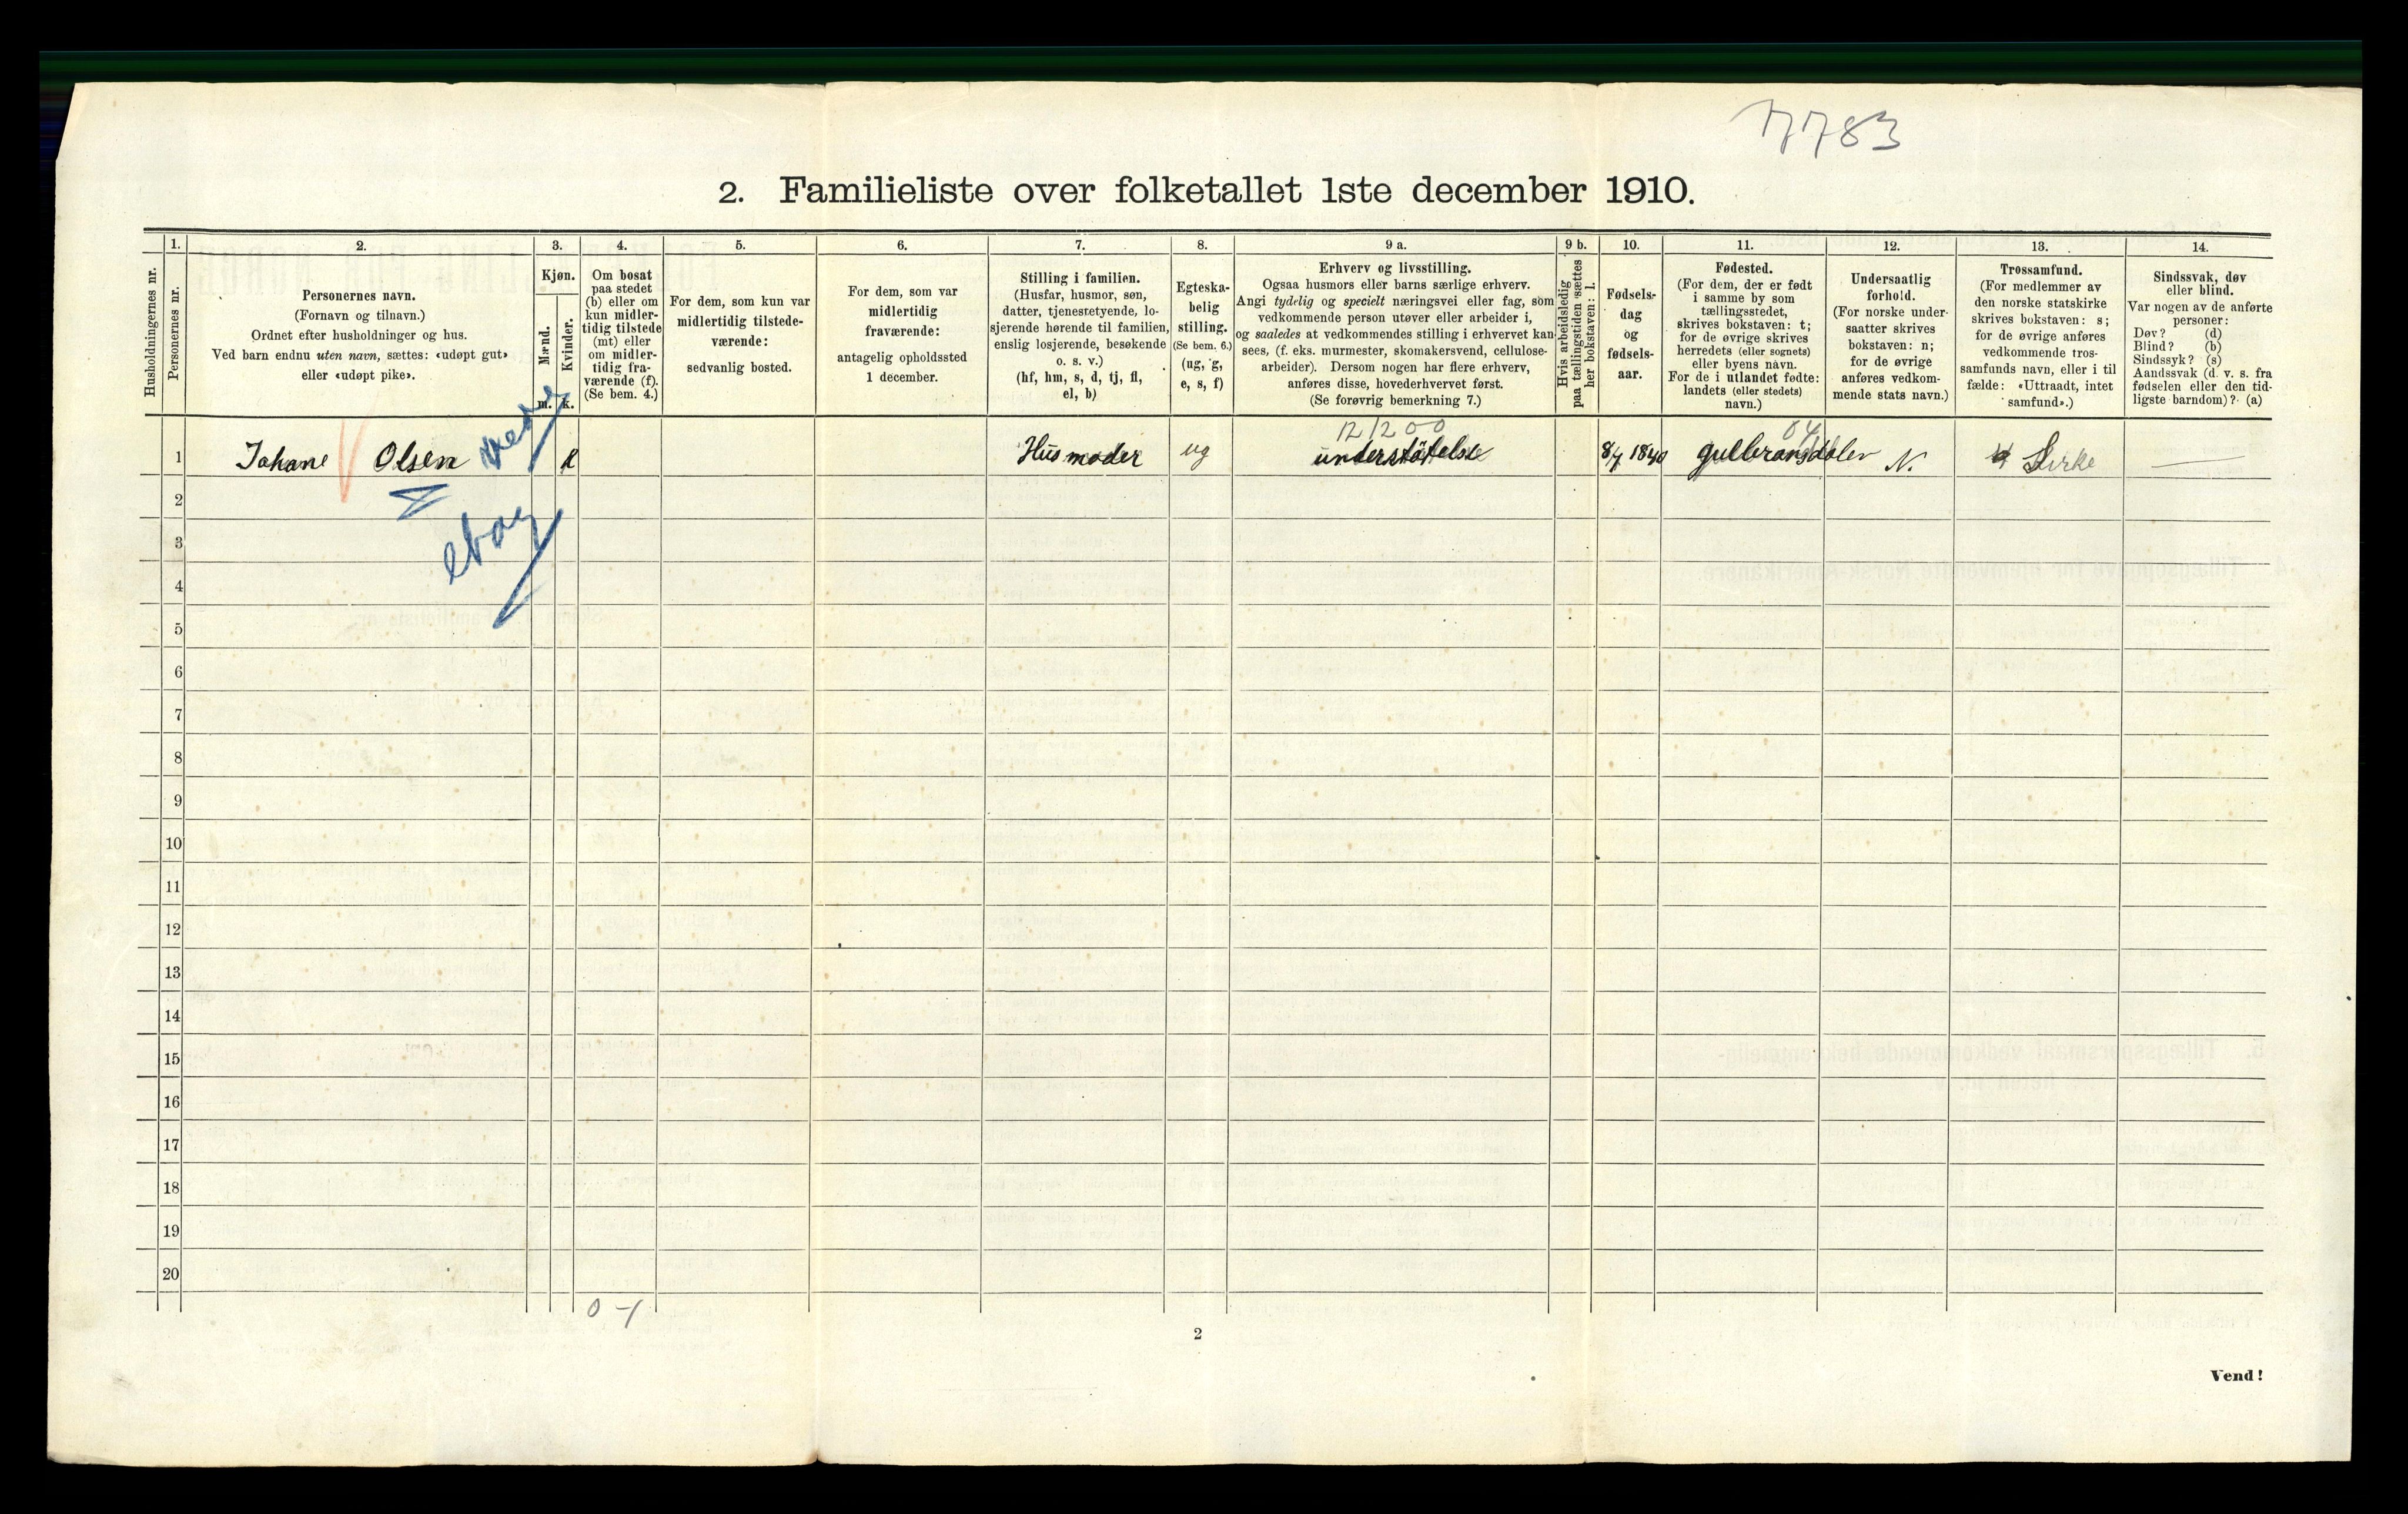 7783
2. Familieliste over folketallet 1ste december 1910.
Husholdningernes nr.
1.
Personernes nr.
2.
Personernes navn.
(Fornavn og tilnavn.)
Ordnet efter husholdninger og hus.
Ved barn endnu uten navn, sættes: «udøpt gut»
eller «udøpt pike».
3.
Kjøn.
Mænd.
Kvinder.
m. k.
4.
Om bosat
paa stedet
(b) eller om
kun midler-
tidig tilstede
(mt) eller
om midler-
tidig fra-
værende (f).
(Se bem. 4.)
5.
For dem, som kun var
midlertidig tilstede-
værende:
sedvanlig bosted.
6.
For dem, som var
midlertidig
fraværende:
antagelig opholdssted
1 december.
7.
Stilling i familien.
(Husfar, husmor, søn,
datter, tjenestetyende, lo-
sjerende hørende til familien,
enslig losjerende, besøkende
o. s. v.)
(hf, hm, s, d, tj, fl,
el, b)
8.
Egteska-
belig
stilling.
(Se bem. 6.)
(ug, g,
e, s, f)
9 a.
Erhverv og livsstilling.
Ogsaa husmors eller barns særlige erhverv.
Angi tydelig og specielt næringsvei eller fag, som
vedkommende person utøver eller arbeider i,
og saaledes at vedkommendes stilling i erhvervet kan
sees, (f. eks. murmester, skomakersvend, cellulose-
arbeider). Dersom nogen har flere erhverv,
anføres disse, hovederhvervet først.
(Se forøvrig bemerkning 7.)
9 b.
Hvis arbeidsledig
paa tællingstiden sættes
her bokstaven: l.
10.
Fødsels-
dag
og
fødsels-
aar.
11.
Fødested.
(For dem, der er født
i samme by som
tællingsstedet,
skrives bokstaven: t;
for de øvrige skrives
herredets (eller sognets)
eller byens navn.
For de i utlandet fødte:
landets (eller stedets)
navn.)
12.
Undersaatlig
forhold.
(For norske under-
saatter skrives
bokstaven: n;
for de øvrige
anføres vedkom-
mende stats navn.)
13.
Trossamfund.
(For medlemmer av
den norske statskirke
skrives bokstaven: s;
for de øvrige anføres
vedkommende tros-
samfunds navn, eller i til
fælde: «Uttraadt, intet
samfund».)
14.
Sindssvak, døv
eller blind.
Var nogen av de anførte
personer:
Døv? (d)
Blind? (b)
Sindssyk? (s)
Aandssvak (d. v. s. fra
fødselen eller den tid-
ligste barndom)? (a)
121200 04
1 Johane Olsen k Husmoder ug understøtelse 8/7 1840 gulbransdalen N. Kirke
2
3
4
5
6
7
8
9
10
11
12
13
14
15
16
17
18
19
20
0-1
2
Vend!